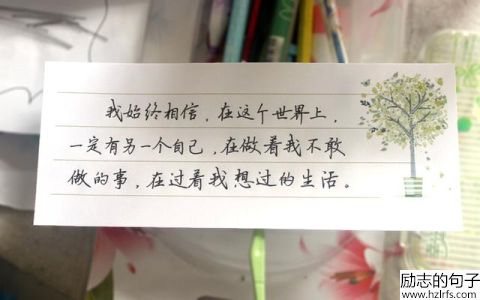 我始终相信，在这个世界上，
一定有另一个自己，在做着我不敢
做的事，在过着我想过的生活。
励志的句子
www.hzlrfs.com